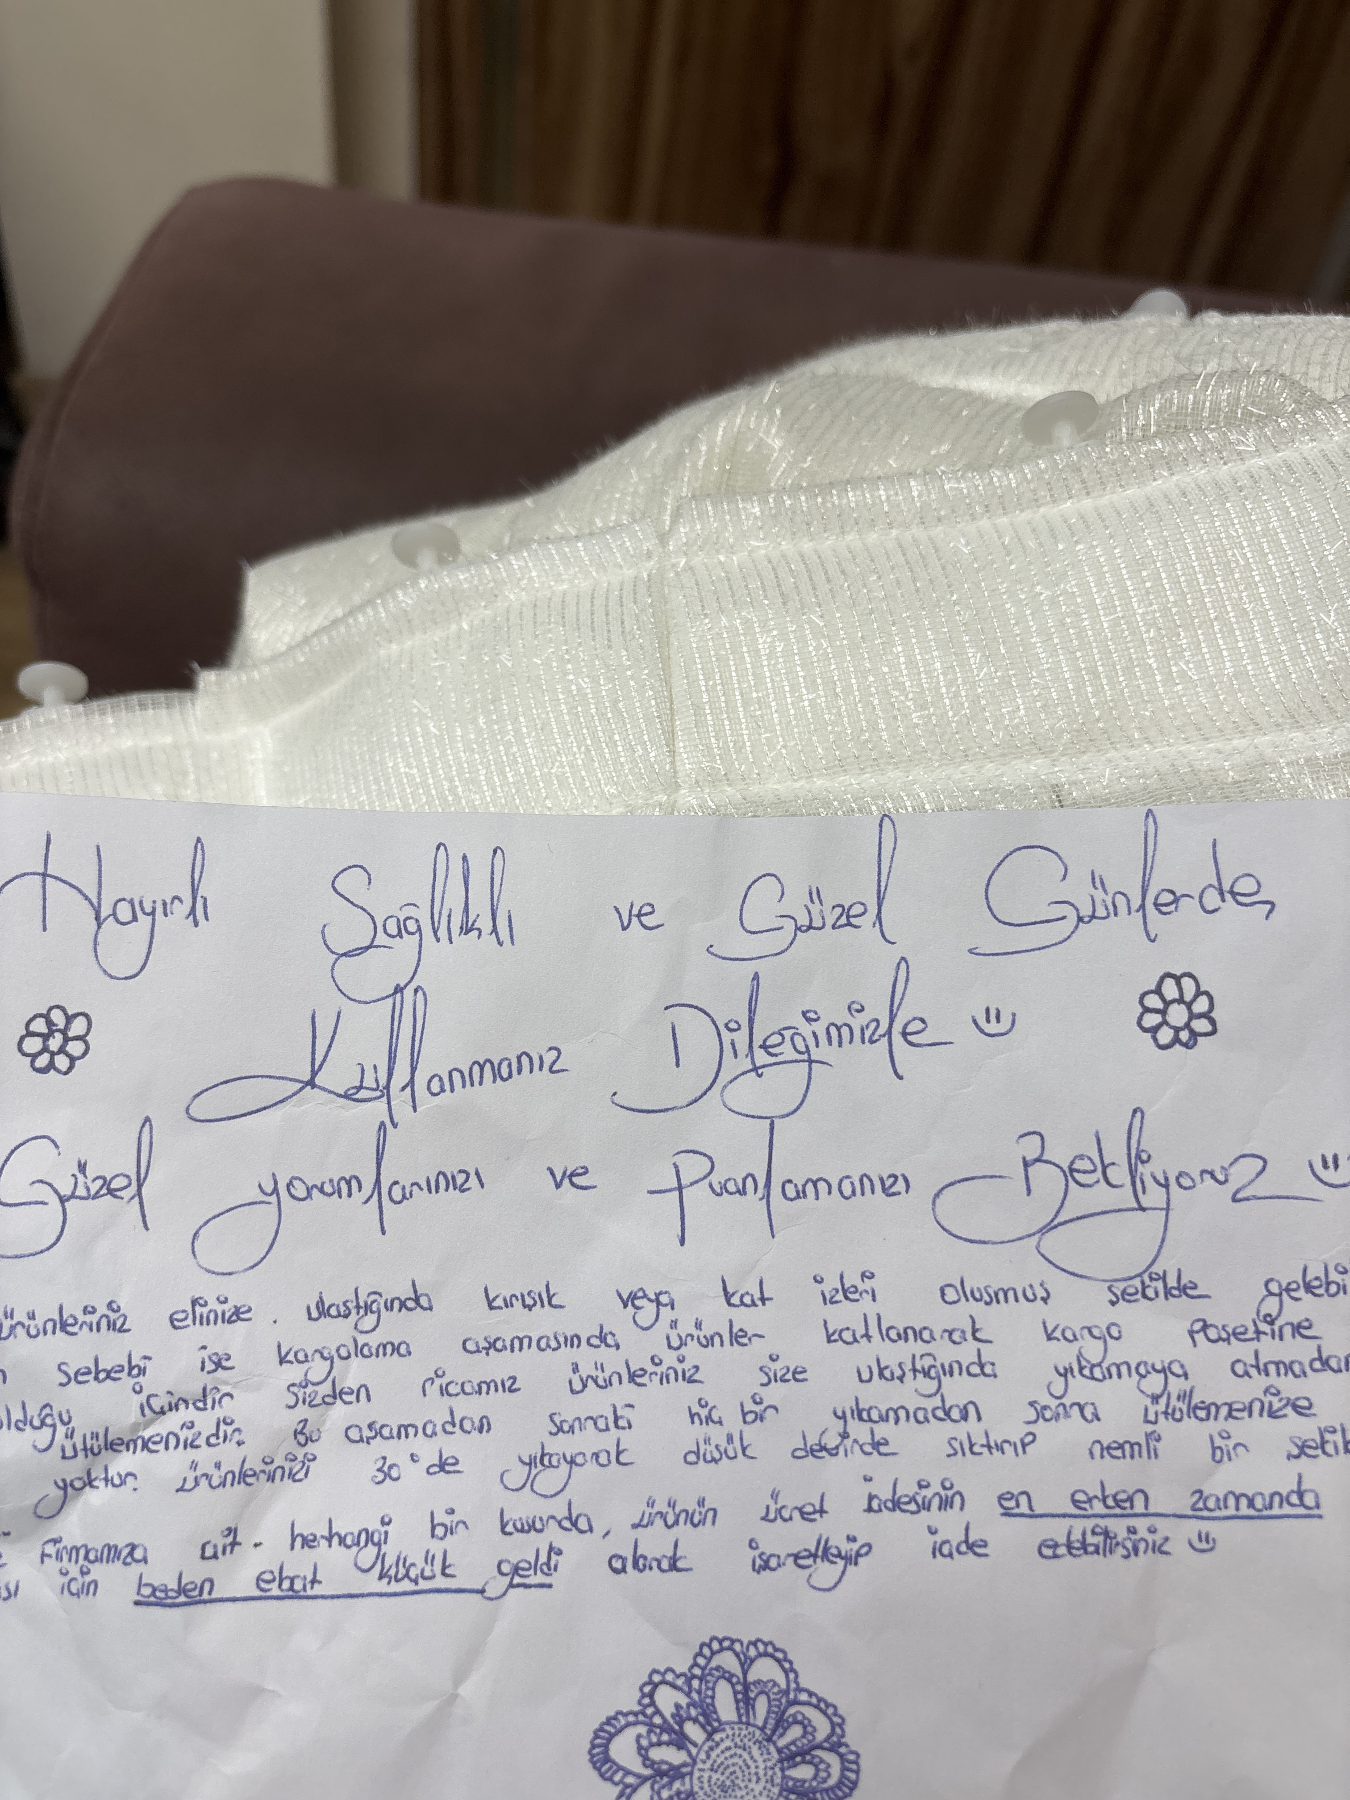 Hayırlı Sağlıklı ve Güzel Günlerde,
Kullanmanız Dileğimizle
Güzel yorumlarınızı ve Puanlamanızı Bekliyoruz
ürünleriniz elinize ulaştığında kırışık veya kat izleri oluşmuş şekilde gelebi
sebebi ise kargolama aşamasında, ürünler katlanarak kargo poşetine
olduğu içindir Sizden ricamız ürünleriniz size ulaştığında yıkamaya atmadan
ütülemenizdir. Bu aşamadan sonraki hiç bir yıkamadan sonra ütülemenize
yoktur. ürünlerinizi 30° de yıkayarak düşük devirde sıktırıp nemli bir şekil
Firmamıza ait. herhangi bir kusurda, ürünün ücret iadesinin en erken zamanda
sı için beden ebat küçük geldi olarak işaretleyip iade edebilirsiniz